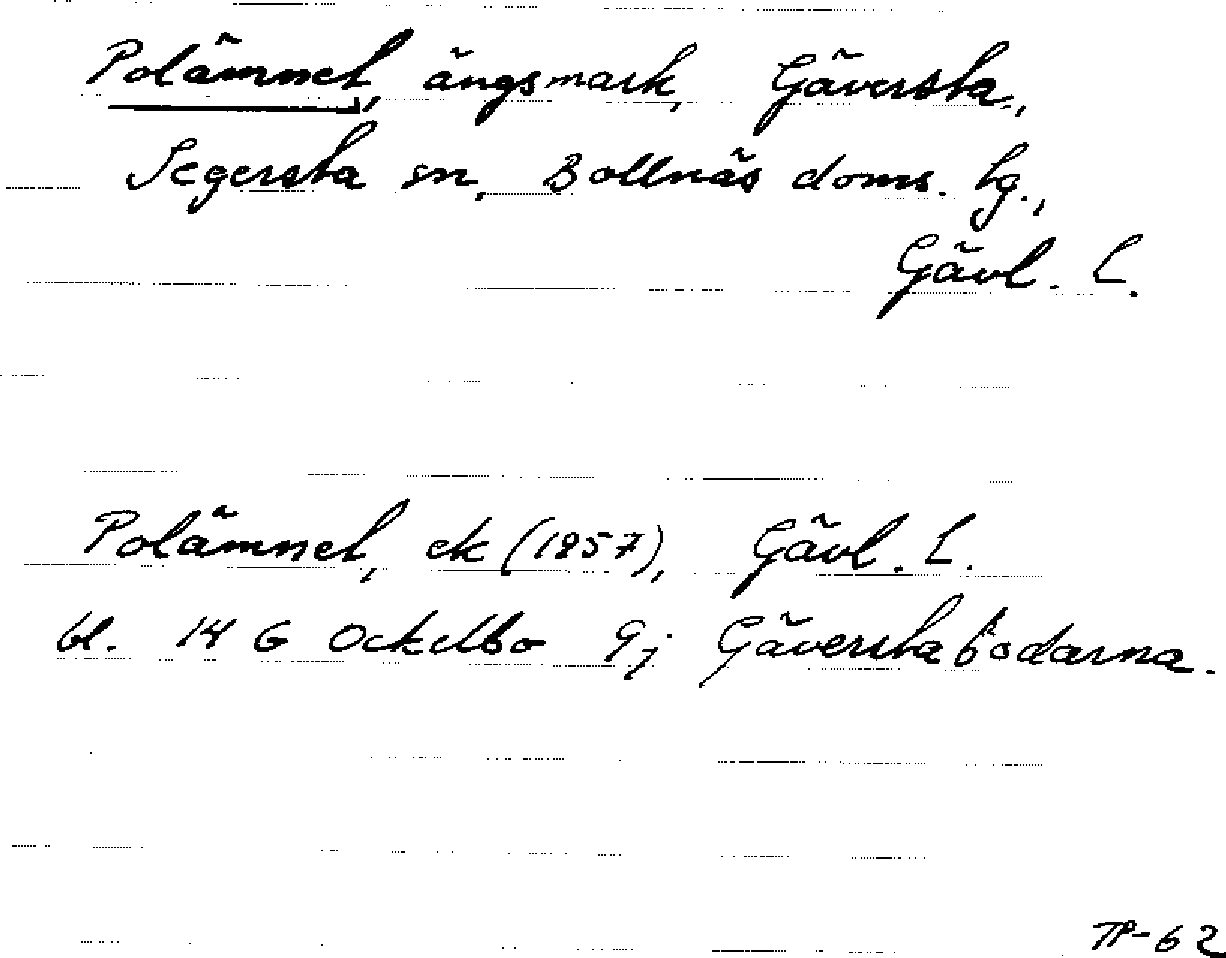 Polämnet, ängsmark, Gäversta,
Segersta sn, Bollnäs doms. tg.,
Gävl. l.
Polämnet, ek (1957), Gävl. l.
bl. 14 G Ockelbo 9j Gäverstabodarna.
TP-62